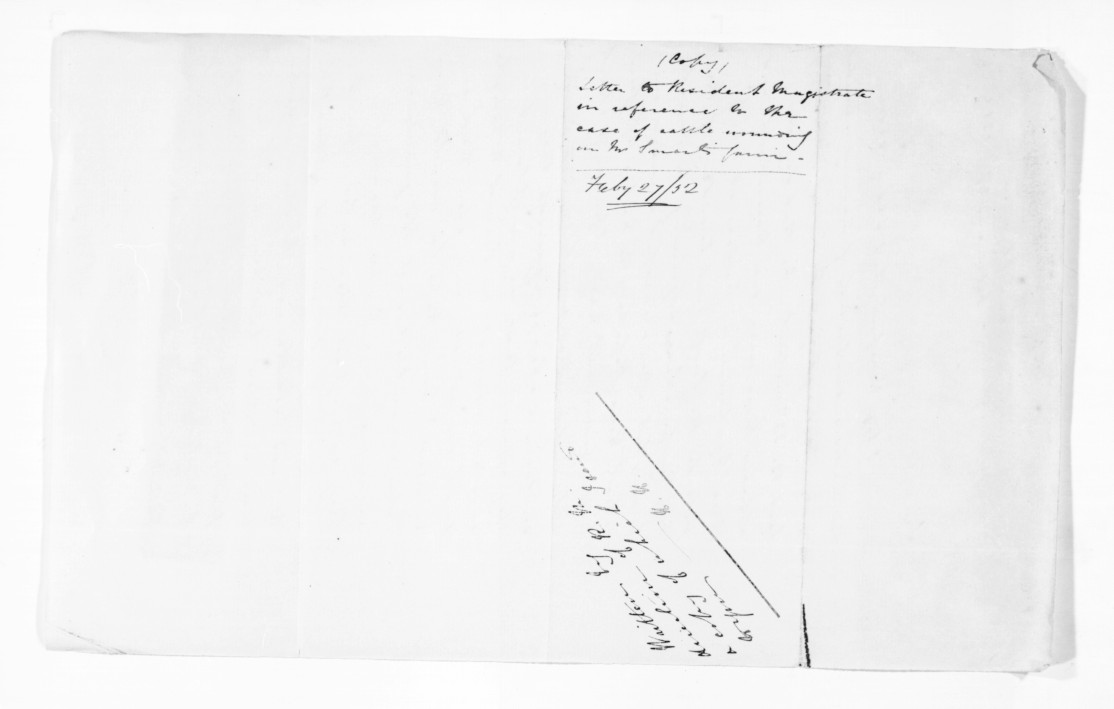 (Copy)
Letter to Resident Magistrate
in reference to the
case of cattle wounding
on Mr Smart's farm -
Feby 27/52
Written
of
& copy of which